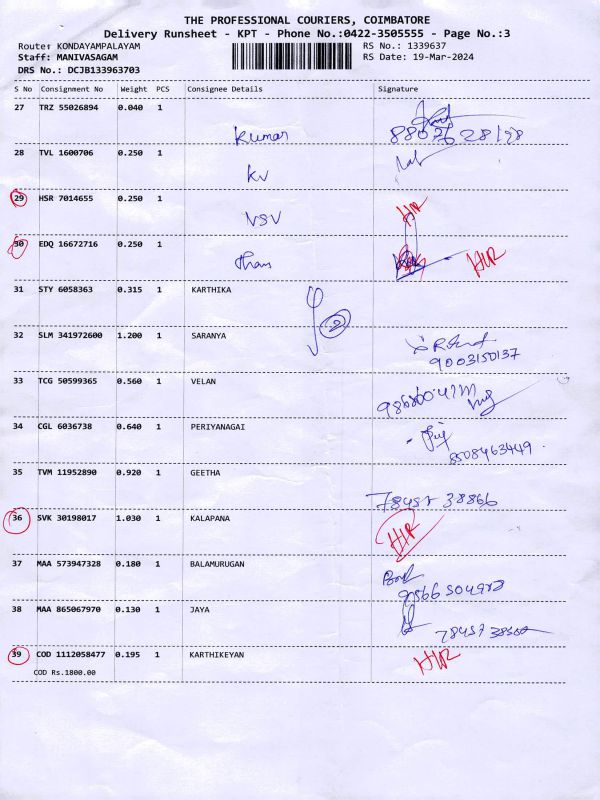 THE PROFESSIONAL COURIERS, COIMBATORE
Delivery Runsheet - KPT - Phone No.:0422-3505555 - Page No.:3
Route: KONDAYAMPALAYAM RS No.: 1339637
Staff: MANIVASAGAM RS Date: 19-Mar-2024
DRS No.: DCJB133963703
S No Consignment No Weight PCS Consignee Details Signature
27 TRZ 55026894 0.040 1 Kumar
28 TVL 1600706 0.250 1 KV
29 HSR 7014655 0.250 1 VSV HIR
30 EDQ 16672716 0.250 1 HIR
31 STY 6058363 0.315 1 KARTHIKA 2
32 SLM 341972600 1.200 1 SARANYA
9003150137
33 TCG 50599365 0.560 1 VELAN
34 CGL 6036738 0.640 1 PERIYANAGAI
8508463449
35 TVM 11952890 0.920 1 GEETHA
78457 38866
36 SVK 30198017 1.030 1 KALAPANA HIR
37 MAA 573947328 0.180 1 BALAMURUGAN
38 MAA 865067970 0.130 1 JAYA
39 COD 1112058477 0.195 1 KARTHIKEYAN HIR
COD Rs.1800.00